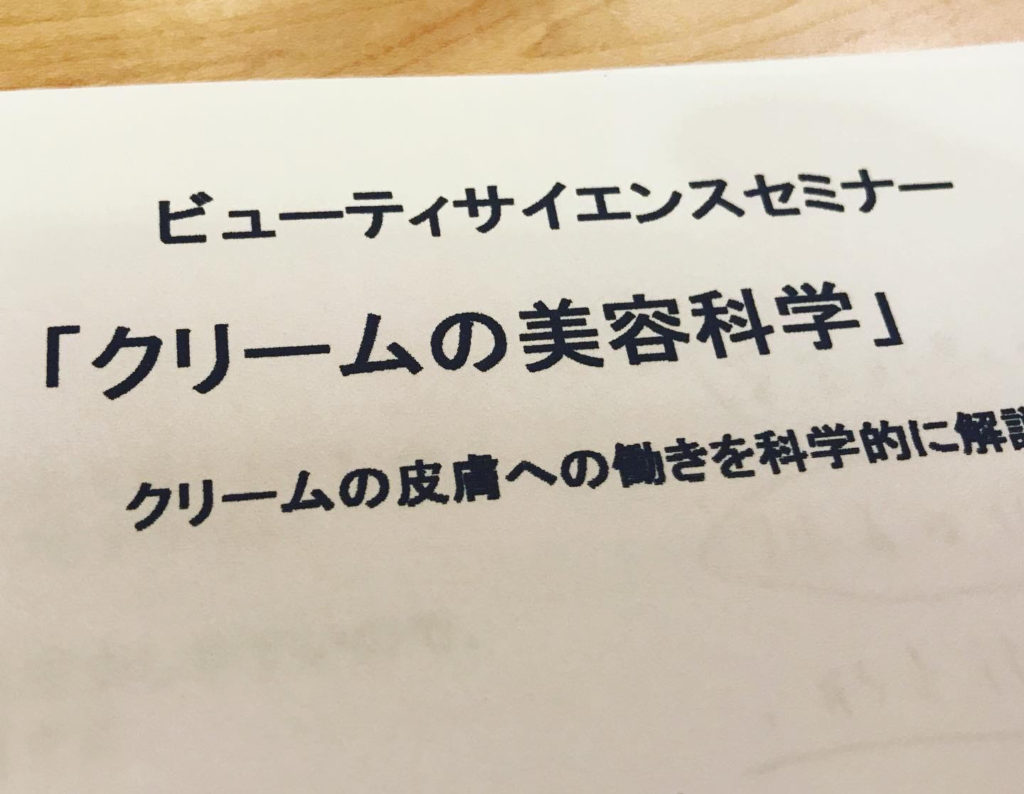 ビューティサイエンスセミナー
「クリームの美容科学」
クリームの皮膚への働きを科学的に解説